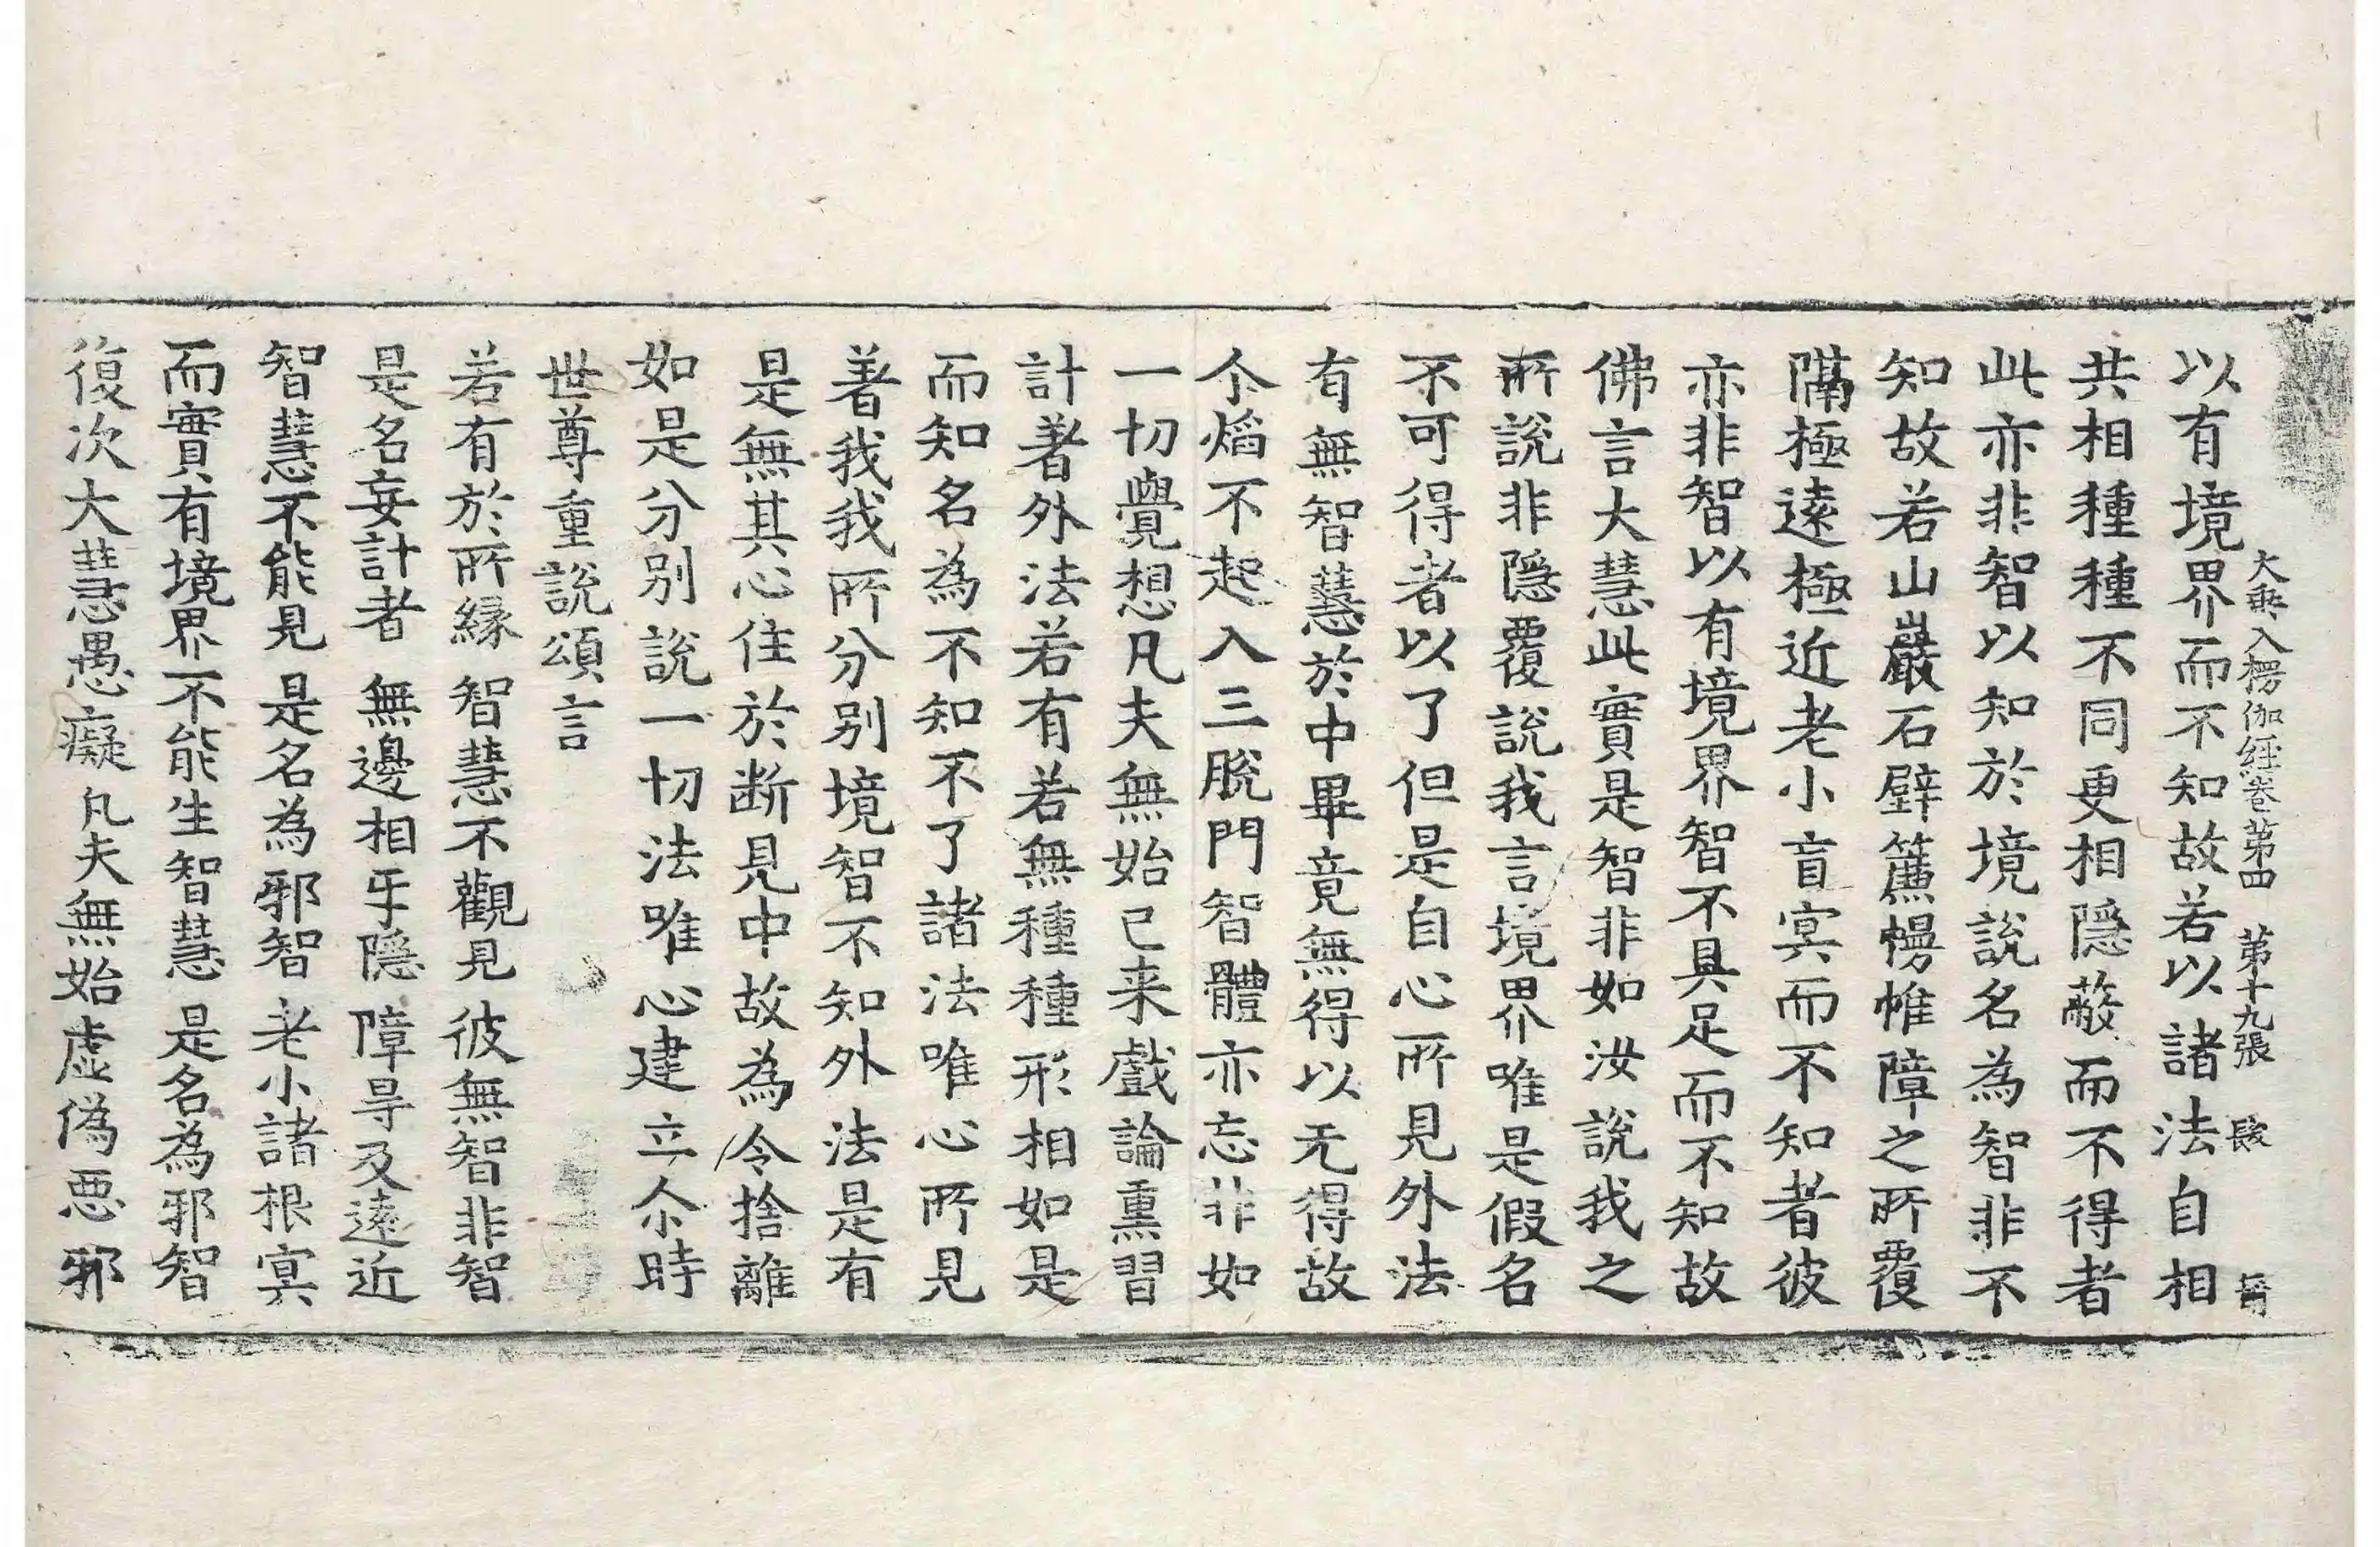 大乘入楞伽經卷第四　第十九張　髮
以有境界而不知故若以諸法自相
共相種種不同更相隱蔽而不得者
此亦非智以知於境說名為智非不
知故若山巖石壁簾幔帷障之所覆
隔極遠極近老小盲冥而不知者彼
亦非智以有境界智不具足而不知故
佛言大慧此實是智非如汝說我之
所說非隱覆說我言境界唯是假名
不可得者以了但是自心所見外法
有無智慧於中畢竟無得以无得故
尒焰不起入三脫門智體亦忘非如
一切覺想凡夫無始已来戲論熏習
計著外法若有若無種種形相如是
而知名為不知不了諸法唯心所見
著我我所分別境智不知外法是有
是無其心住於断見中故為令捨離
如是分別說一切法唯心建立尒時
世尊重說頌言
若有於所緣　智慧不觀見　彼無智非智
是名妄計者　無邊相乎隱　障㝵及遠近
智慧不能見　是名為邪智　老小諸根冥
而實有境界　不能生智慧　是名為邪智
復次大慧愚癡凡夫無始虛偽惡邪